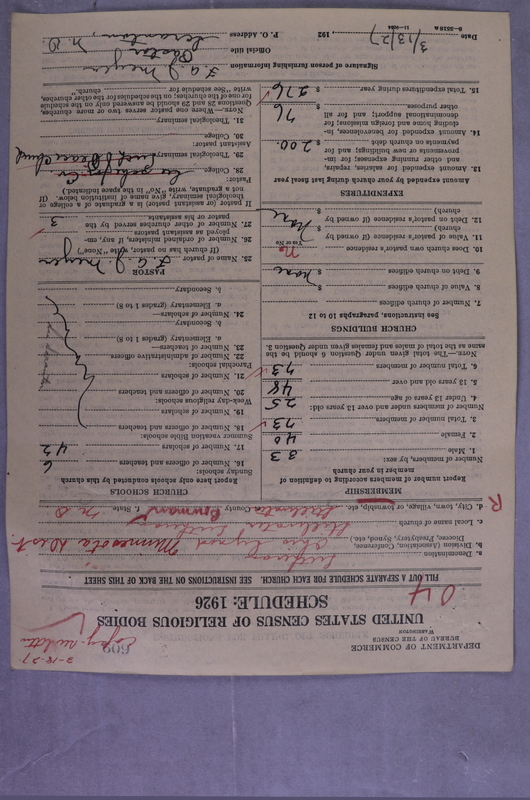 DEPARTMENT OF COMMERCE
BUREAU OF THE CENSUS
WASHINGTON
609
2-18-27
Copy
UNITED STATES CENSUS OF RELIGIOUS BODIES
SCHEDULE: 1926
04
FILL OUT A SEPARATE SCHEDULE FOR EACH CHURCH. SEE INSTRUCTIONS ON THE BACK OF THIS SHEET
a. Denomination Lutheran
b. Division (Association, Conference, Diocese, Presbytery, Synod, etc.) Ohio Synod Minnesota Dist.
c. Local name of church Stillwater Lutheran
d. City, town, village, or township, etc. Stillwater County Bowman State N D
R
MEMBERSHIP
Report number of members according to definition of member in your church
Number of members, by sex:
1. Male 33
2. Female 40
3. Total number of members 73
Number of members under and over 13 years old:
4. Under 13 years of age 25
5. 13 years old and over 48
6. Total number of members 73
NOTE.—The total given under Question 6 should be the same as the total of males and females given under Question 3.
CHURCH BUILDINGS
See instructions, paragraphs 10 to 12
7. Number of church edifices
8. Value of church edifices $ none
9. Debt on church edifices $
10. Does church own pastor's residence No
Yes or No
11. Value of pastor's residence (if owned by church) $ None
12. Debt on pastor's residence (if owned by church) $
EXPENDITURES
Amount expended by your church during last fiscal year
13. Amount expended for salaries, repairs, and other running expenses; for improvements or new buildings; and for payments on church debt $ 200.
14. Amount expended for benevolences, including home and foreign missions; for denominational support; and for all other purposes $ 76
15. Total expenditures during year $ 276
CHURCH SCHOOLS
Report here only schools conducted by this church
Sunday schools:
16. Number of officers and teachers 6
17. Number of scholars 42
Summer vacation Bible schools:
18. Number of officers and teachers
19. Number of scholars
Week-day religious schools:
20. Number of officers and teachers
21. Number of scholars
Parochial schools:
22. Number of administrative officers
23. Number of teachers—
a. Elementary (grades 1 to 8)
b. Secondary
24. Number of scholars—
a. Elementary (grades 1 to 8)
b. Secondary
PASTOR
25. Name of pastor F. A. J. Meyer
(If church has no pastor, write "None")
26. Number of ordained ministers, if any, employed as assistants to pastor
27. Number of other churches served by the pastor or his assistants 3
If pastor (or assistant pastor) is a graduate of college or theological seminary, give name of institution below. (If not a graduate, write "No" in the space indicated.)
Pastor:
28. College
29. Theological seminary Luth Seminary
Assistant pastor:
30. College
31. Theological seminary
NOTE.—Where one pastor serves two or more churches, Questions 28 and 29 should be answered only on the schedule for one of the churches; on the schedules for the other churches, write "See schedule for church."
Signature of person furnishing information F. A. J. Meyer
Official title Pastor
P. O. Address Scranton, N. D.
Date 3/13/27, 192